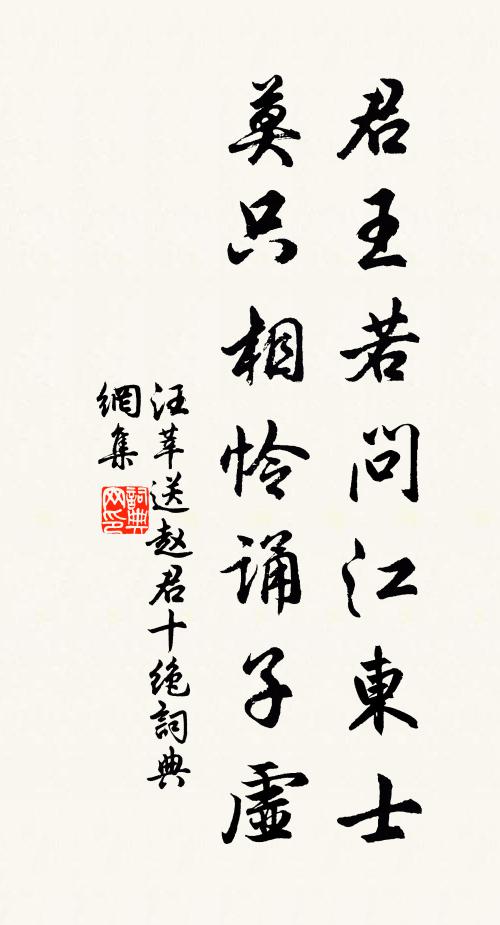 君王若問江東士
莫只相怜誦子虛
汪莘送赵君十绝詞典
網集
詞典
网印